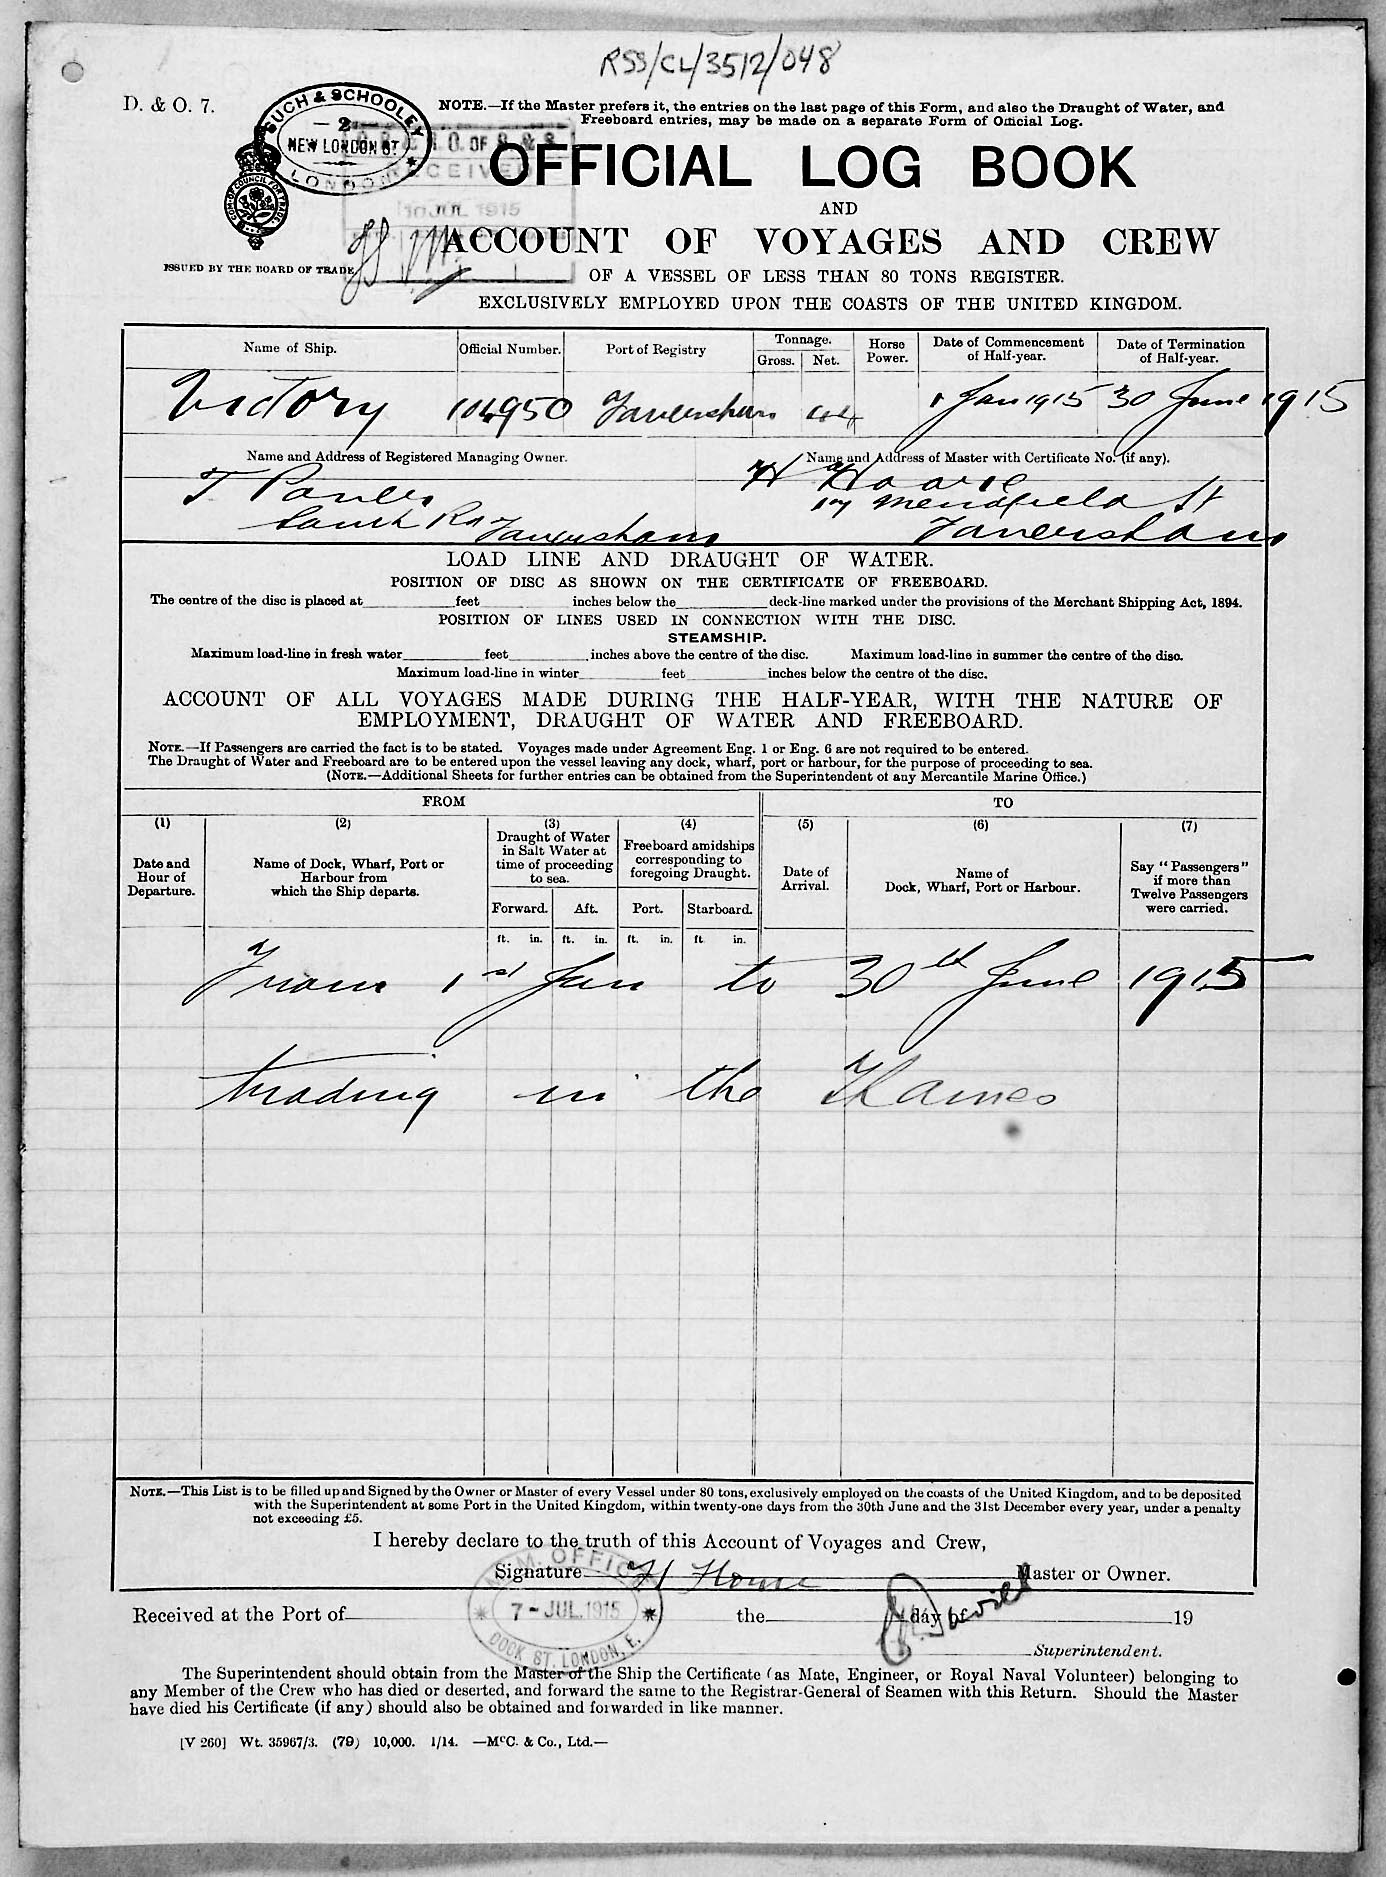 RSS/CL/3512/048
D. & O. 7.
SUCH & SCHOOLEY
2
NEW LONDON ST
LONDON
NOTE.—If the Master prefers it, the entries on the last page of this Form, and also the Draught of Water, and
Freeboard entries, may be made on a separate Form of Official Log.
RECEIVED
10 JUL 1915
OFFICIAL LOG BOOK
AND
ACCOUNT OF VOYAGES AND CREW
ISSUED BY THE BOARD OF TRADE
OF A VESSEL OF LESS THAN 80 TONS REGISTER.
EXCLUSIVELY EMPLOYED UPON THE COASTS OF THE UNITED KINGDOM.
Name of Ship. Official Number. Port of Registry Tonnage. Gross. Net. Horse Power. Date of Commencement of Half-year. Date of Termination of Half-year.
Victory 104950 Faversham 1 Jan 1915 30 June 1915
Name and Address of Registered Managing Owner. Name and Address of Master with Certificate No. (if any).
T H Hoare
St
Faversham Faversham
LOAD LINE AND DRAUGHT OF WATER.
POSITION OF DISC AS SHOWN ON THE CERTIFICATE OF FREEBOARD.
The centre of the disc is placed at feet inches below the deck-line marked under the provisions of the Merchant Shipping Act, 1894.
POSITION OF LINES USED IN CONNECTION WITH THE DISC.
STEAMSHIP.
Maximum load-line in fresh water feet inches above the centre of the disc. Maximum load-line in summer the centre of the disc.
Maximum load-line in winter feet inches below the centre of the disc.
ACCOUNT OF ALL VOYAGES MADE DURING THE HALF-YEAR, WITH THE NATURE OF
EMPLOYMENT, DRAUGHT OF WATER AND FREEBOARD.
NOTE.—If Passengers are carried the fact is to be stated. Voyages made under Agreement Eng. 1 or Eng. 6 are not required to be entered.
The Draught of Water and Freeboard are to be entered upon the vessel leaving any dock, wharf, port or harbour, for the purpose of proceeding to sea.
(NOTE.—Additional Sheets for further entries can be obtained from the Superintendent of any Mercantile Marine Office.)
FROM TO
(1) (2) (3) (4) (5) (6) (7)
Date and Hour of Departure.
Name of Dock, Wharf, Port or Harbour from which the Ship departs.
Draught of Water in Salt Water at time of proceeding to sea.
Freeboard amidships corresponding to foregoing Draught.
Date of Arrival.
Name of Dock, Wharf, Port or Harbour.
Say "Passengers" if more than Twelve Passengers were carried.
Forward. Aft. Port. Starboard.
ft. in. ft. in. ft. in. ft in.
From 1st Jan to 30th June 1915
trading in the Thames
NOTE.—This List is to be filled up and Signed by the Owner or Master of every Vessel under 80 tons, exclusively employed on the coasts of the United Kingdom, and to be deposited
with the Superintendent at some Port in the United Kingdom, within twenty-one days from the 30th June and the 31st December every year, under a penalty
not exceeding £5.
I hereby declare to the truth of this Account of Voyages and Crew,
Signature H Master or Owner.
M. M. OFFICE
7-JUL.1915
DOCK ST. LONDON, E.
Received at the Port of the day of 19
Superintendent.
The Superintendent should obtain from the Master of the Ship the Certificate (as Mate, Engineer, or Royal Naval Volunteer) belonging to
any Member of the Crew who has died or deserted, and forward the same to the Registrar-General of Seamen with this Return. Should the Master
have died his Certificate (if any) should also be obtained and forwarded in like manner.
[V 260] Wt. 35967/3. (79) 10,000. 1/14. —McC. & Co., Ltd.—